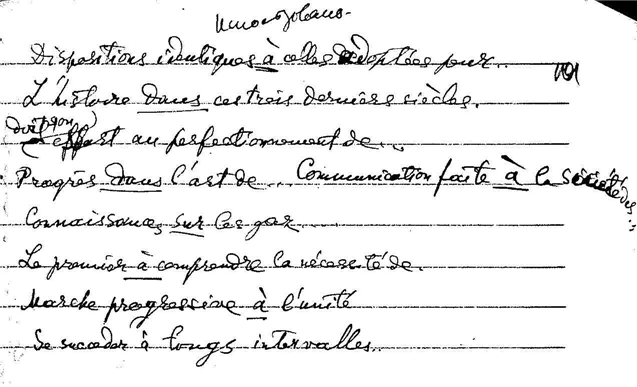 Dispositions identiques à celles adoptées pour..
191
L'histoire dans ces trois derniers siècles.
effort au perfectionnement de...
Progrès dans l'art de... Communication faite à la société des...
Connaissances sur les gaz...
Le premier à comprendre la nécessité de.
Marche progressive à l'unité
Se succéder à longs intervalles..